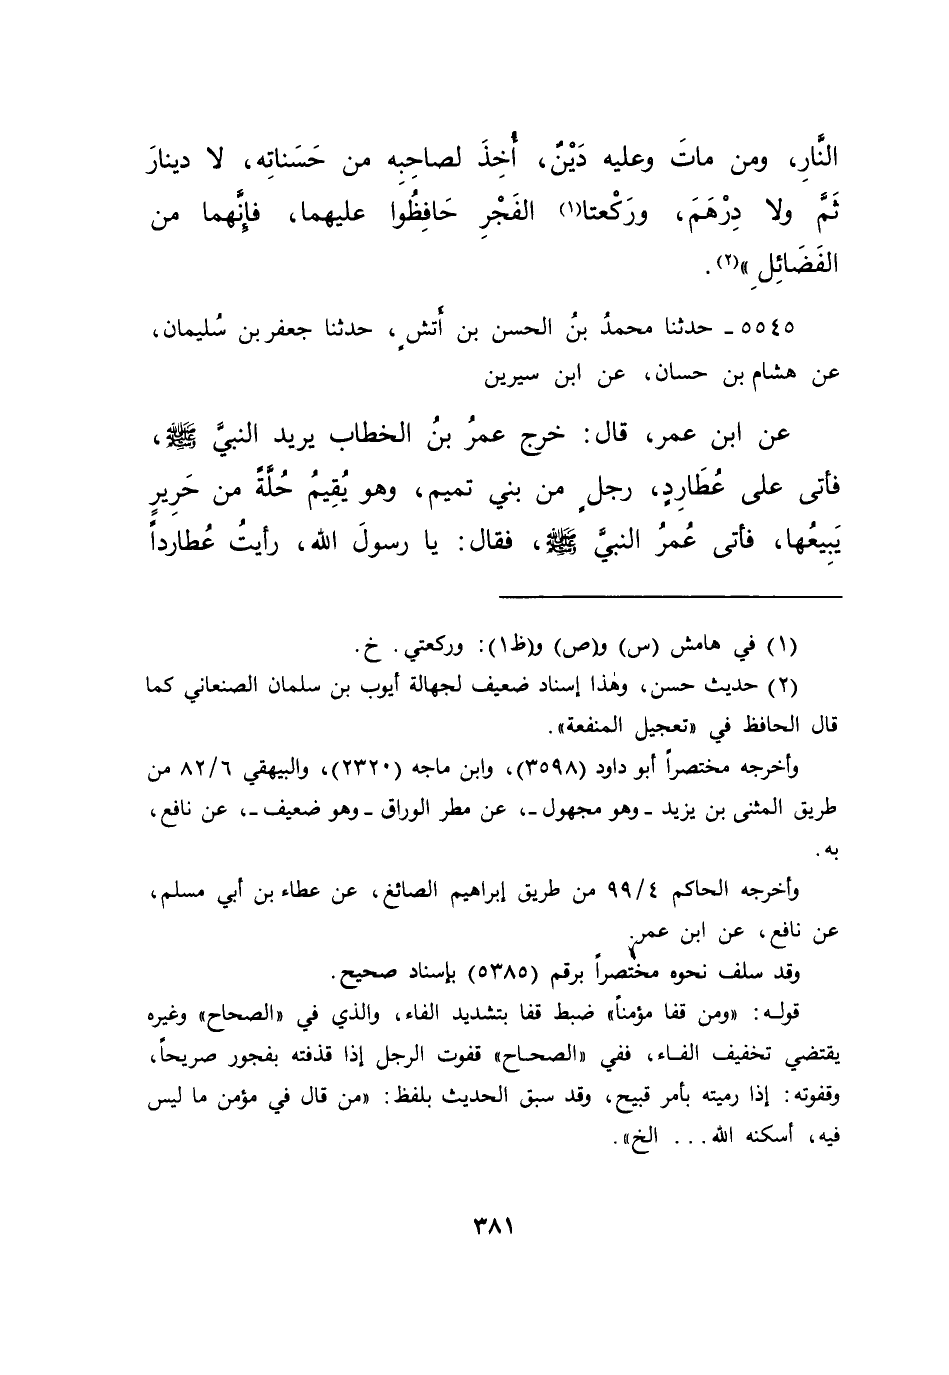 النَّارِ، ومن ماتَ وعليه دَيْنٌ، أُخِذَ لصاحِبِه من حَسَناتِه، لا دينارَ
ثَمَّ ولا دِرْهَمَ، ورَكْعتا(١) الفَجْرِ حَافِظُوا عليهما، فإِنَّهما من
الفَضَائِلِ»(٢).
٥٥٤٥ ـ حدثنا محمدُ بنُ الحسن بن أَتشٍ، حدثنا جعفر بن سُليمان،
عن هشام بن حسان، عن ابن سيرين
عن ابن عمر، قال: خرج عمرُ بنُ الخطاب يريد النبيَّ ﷺ،
فأتى على عُطَارِدٍ، رجلٍ من بني تميم، وهو يُقِيمُ حُلَّةً من حَرِيرٍ
يَبِيعُها، فأتى عُمرُ النبيَّ ﷺ، فقال: يا رسولَ الله، رأيتُ عُطارداً
(١) في هامش (س) و(ص) و(ظ١): وركعتي. خ.
(٢) حديث حسن، وهذا إسناد ضعيف لجهالة أيوب بن سلمان الصنعاني كما
قال الحافظ في «تعجيل المنفعة».
وأخرجه مختصراً أبو داود (٣٥٩٨)، وابن ماجه (٢٣٢٠)، والبيهقي ٨٢/٦ من
طريق المثنى بن يزيد ـ وهو مجهول ـ، عن مطر الوراق ـ وهو ضعيف ـ، عن نافع،
به.
وأخرجه الحاكم ٩٩/٤ من طريق إبراهيم الصائغ، عن عطاء بن أبي مسلم،
عن نافع، عن ابن عمر.
وقد سلف نحوه مختصراً برقم (٥٣٨٥) بإسناد صحيح.
قوله: «ومن قفا مؤمناً» ضبط قفا بتشديد الفاء، والذي في «الصحاح» وغيره
يقتضي تخفيف الفاء، ففي «الصحاح» قفوت الرجل إذا قذفته بفجور صريحاً،
وقفوته: إذا رميته بأمر قبيح، وقد سبق الحديث بلفظ: «من قال في مؤمن ما ليس
فيه، أسكنه الله... الخ».
٣٨١